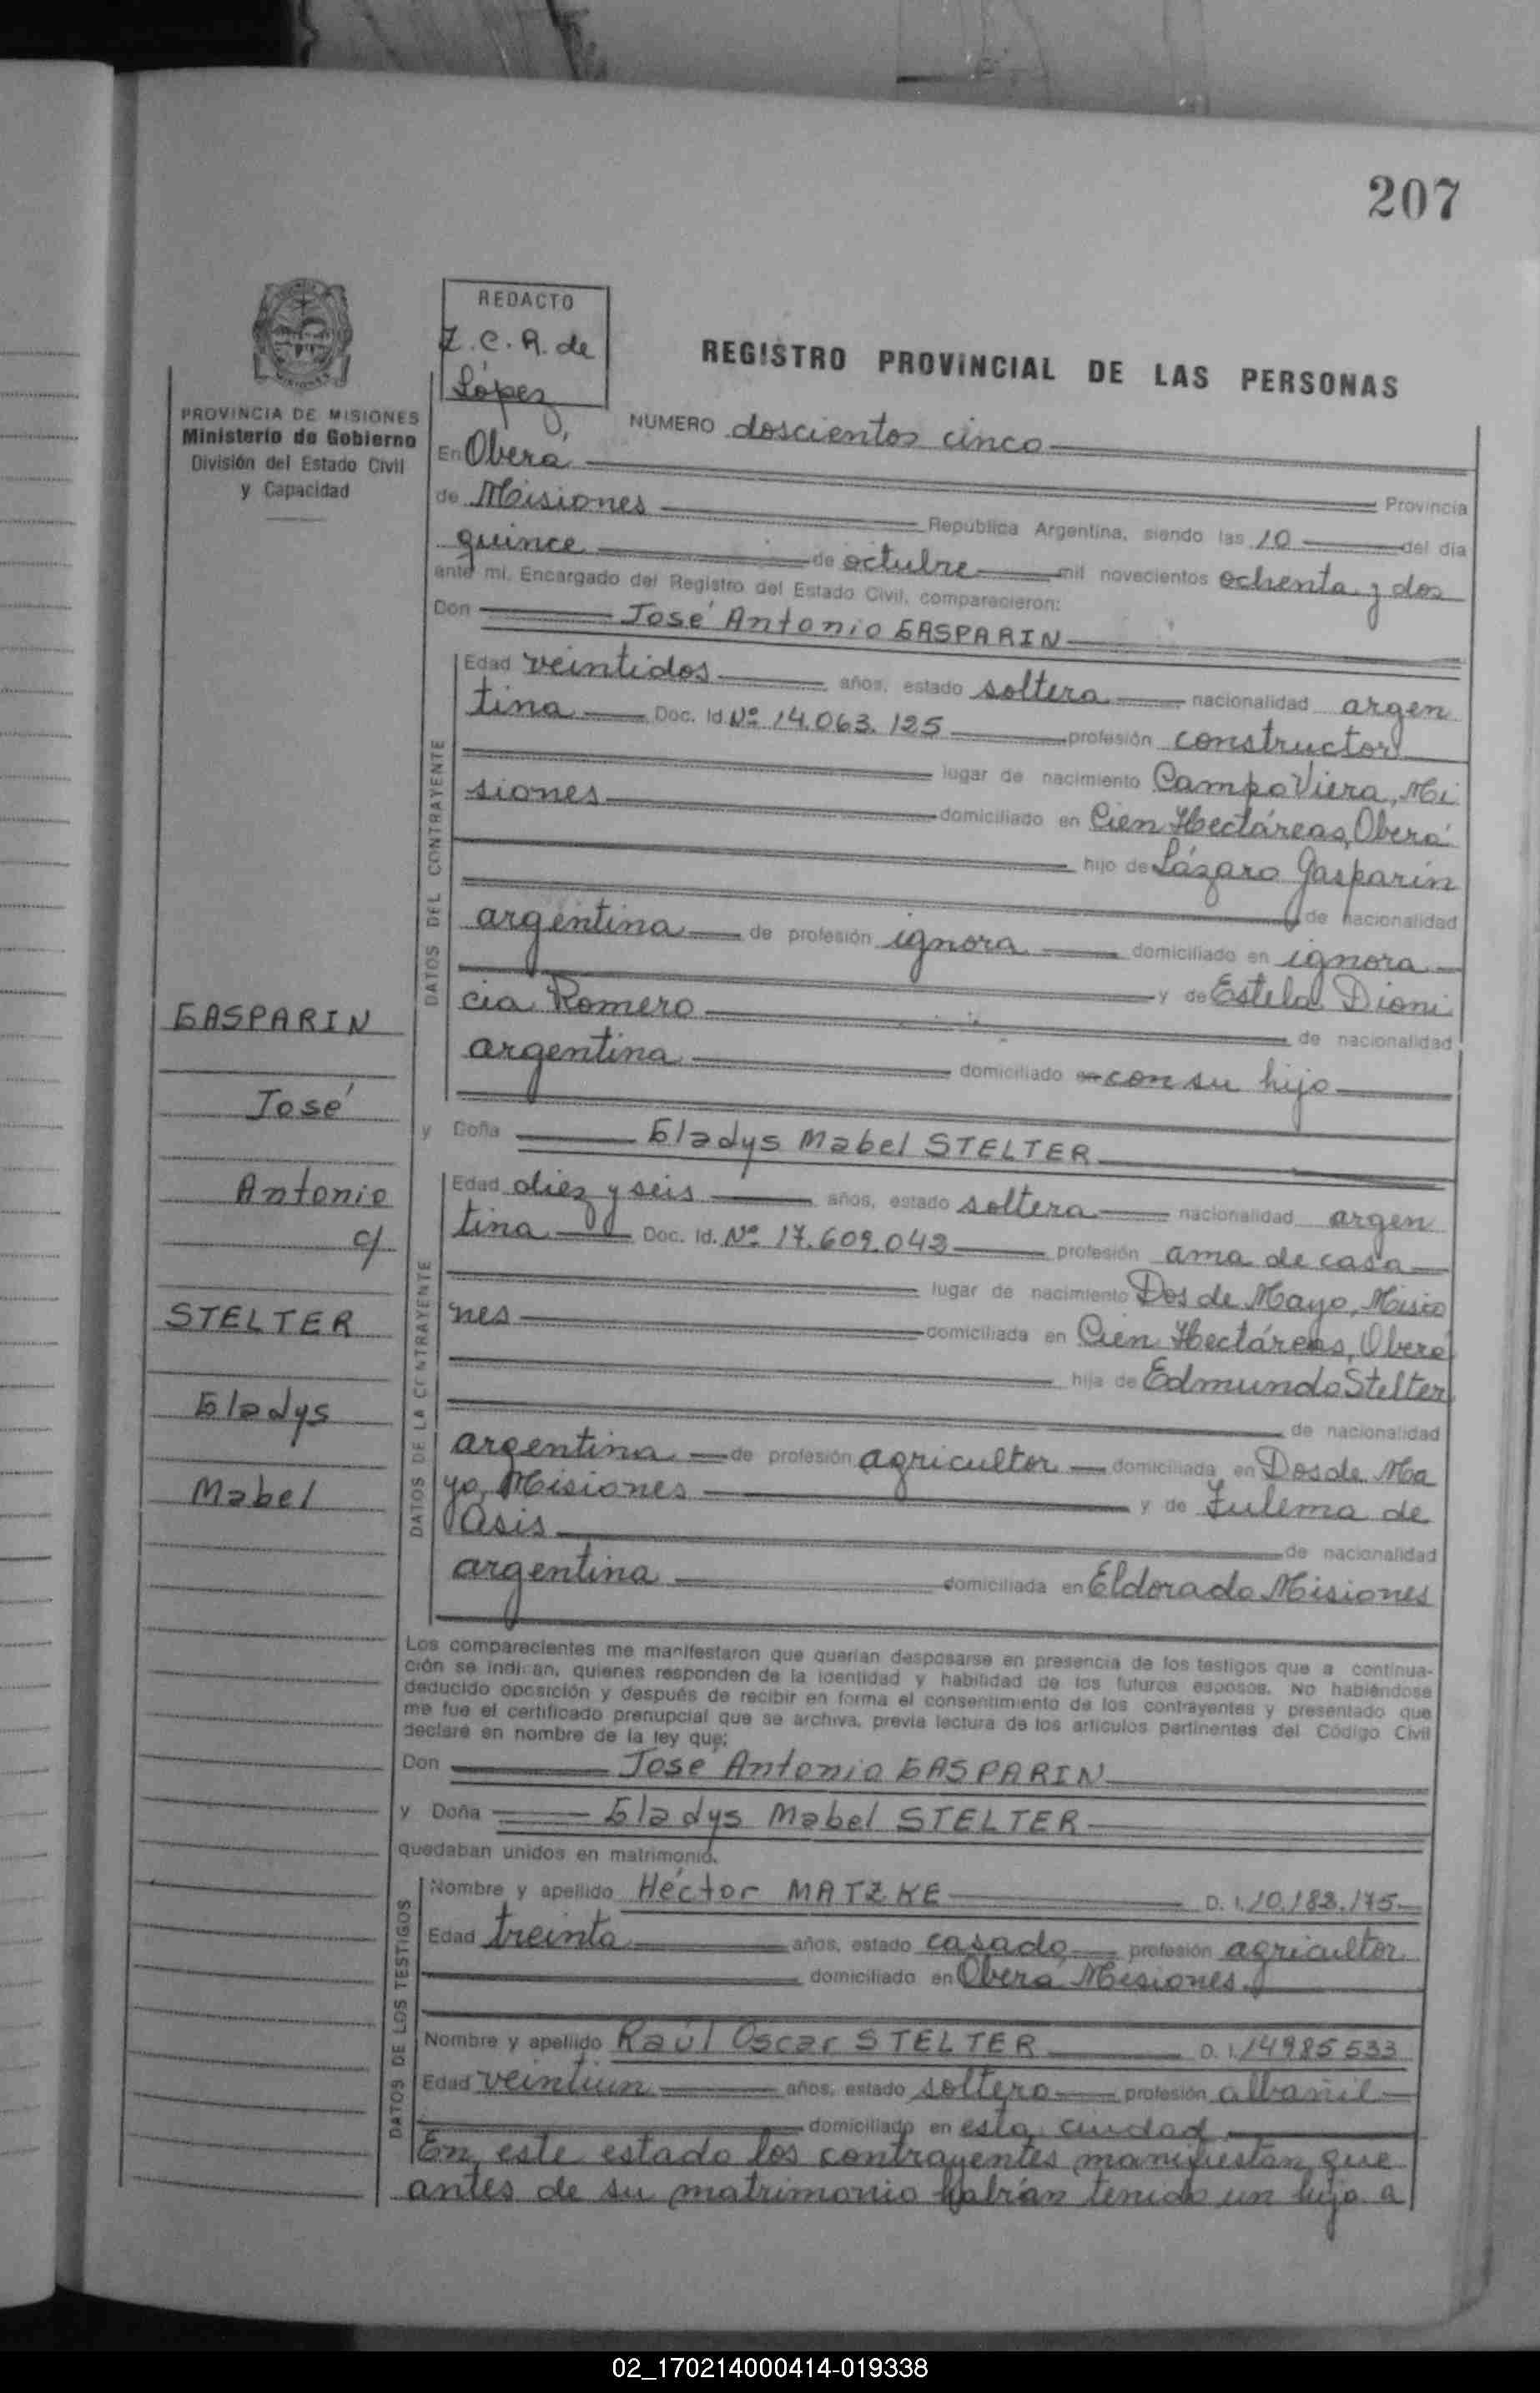 207
REDACTO
Z.C.R. de
López
REGISTRO PROVINCIAL DE LAS PERSONAS
PROVINCIA DE MISIONES
Ministerio de Gobierno
División del Estado Civil
y Capacidad
NUMERO doscientos cinco
En Oberá
Provincia
de Misiones República Argentina, siendo las 10 del día
quince de octubre mil novecientos ochenta y dos
ante mi, Encargado del Registro del Estado Civil, comparecieron:
Don José Antonio GASPARIN
DATOS DEL CONTRAYENTE
Edad veintidos años, estado soltera nacionalidad argen
tina Doc. Id. Nº 14.063.125 profesión constructor
lugar de nacimiento Campo Viera, Mi
siones domiciliado en Cien Hectáreas, Oberá
hijo de Lázaro Gasparin
de nacionalidad
argentina de profesión ignora domiciliado en ignora
y de Estela Dioni
cia Romero de nacionalidad
argentina domiciliado en con su hijo
GASPARIN
José
Antonio
c/
STELTER
Gladys
Mabel
y Doña Gladys Mabel STELTER
DATOS DE LA CONTRAYENTE
Edad diez y seis años, estado soltera nacionalidad argen
tina Doc. Id. Nº 17.609.043 profesión ama de casa
lugar de nacimiento Dos de Mayo, Misio
nes domiciliada en Cien Hectáreas, Oberá
hija de Edmundo Stelter
de nacionalidad
argentina de profesión agricultor domiciliada en Dos de Ma
yo, Misiones y de Zulema de
Asis de nacionalidad
argentina domiciliada en Eldorado Misiones
Los comparecientes me manifestaron que querían desposarse en presencia de los testigos que a continua-
ción se indican, quienes responden de la identidad y habilidad de los futuros esposos. No habiéndose
deducido oposición y después de recibir en forma el consentimiento de los contrayentes y presentado que
me fue el certificado prenupcial que se archiva, previa lectura de los artículos pertinentes del Código Civil
declaré en nombre de la ley que:
Don José Antonio GASPARIN
y Doña Gladys Mabel STELTER
quedaban unidos en matrimonio.
DATOS DE LOS TESTIGOS
Nombre y apellido Héctor MATZKE D. I. 10.183.175
Edad treinta años, estado casado profesión agricultor
domiciliado en Oberá, Misiones.
Nombre y apellido Raúl Oscar STELTER D. I. 14985533
Edad veintiun años, estado soltero profesión albañil
domiciliado en esta ciudad
En este estado los contrayentes manifiestan que
antes de su matrimonio habrían tenido un hijo a
02_170214000414-019338